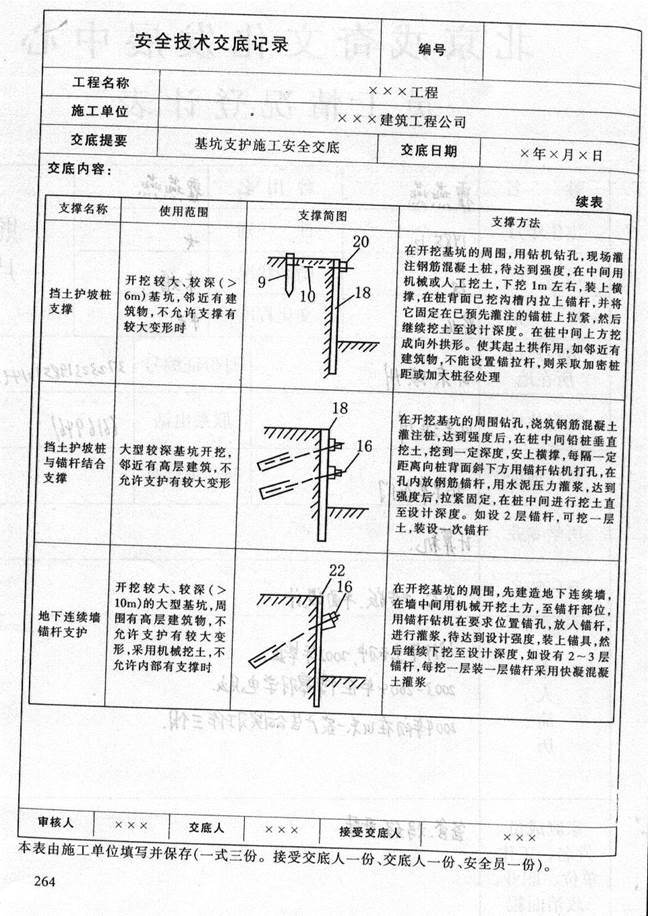 安全技术交底记录
编号
工程名称
×××工程
施工单位
×××建筑工程公司
交底提要
基坑支护施工安全交底
交底日期
×年×月×日
交底内容：
续表
支撑名称
使用范围
支撑简图
支撑方法
挡土护坡桩
支撑
开挖较大、较深（>
6m）基坑，邻近有建
筑物，不允许支撑有
较大变形时
20
9
10
18
在开挖基坑的周围，用钻机钻孔，现场灌
注钢筋混凝土桩，待达到强度，在中间用
机械或人工挖土，下挖1m左右，装上横
撑，在桩背面已挖沟槽内拉上锚杆，并将
它固定在已预先灌注的锚桩上拉紧，然后
继续挖土至设计深度。在桩中间上方挖
成向外拱形。使其起土拱作用，如邻近有
建筑物，不能设置锚拉杆，则采取加密桩
距或加大桩径处理
挡土护坡桩
与锚杆结合
支撑
大型较深基坑开挖，
邻近有高层建筑，不
允许支护有较大变形
18
16
在开挖基坑的周围钻孔，浇筑钢筋混凝土
灌注桩，达到强度后，在桩中间铅桩垂直
挖土，挖到一定深度，安上横撑，每隔一定
距离向桩背面斜下方用锚杆钻机打孔，在
孔内放钢筋锚杆，用水泥压力灌浆，达到
强度后，拉紧固定，在桩中间进行挖土直
至设计深度。如设2层锚杆，可挖一层
土，装设一次锚杆
地下连续墙
锚杆支护
开挖较大、较深（>
10m）的大型基坑，周
围有高层建筑物，不
允许支护有较大变
形，采用机械挖土，不
允许内部有支撑时
22
16
在开挖基坑的周围，先建造地下连续墙，
在墙中间用机械开挖土方，至锚杆部位，
用锚杆钻机在要求位置锚孔，放入锚杆，
进行灌浆，待达到设计强度，装上锚具，然
后继续下挖至设计深度，如设有2～3层
锚杆，每挖一层装一层锚杆采用快凝混凝
土灌浆
审核人
×××
交底人
×××
接受交底人
×××
本表由施工单位填写并保存（一式三份。接受交底人一份、交底人一份、安全员一份）。
264